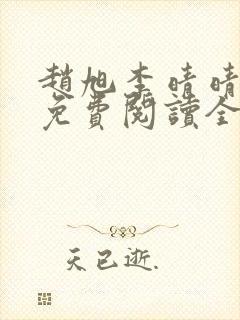 趙旭李晴晴
免費閱讀全
天已逝.